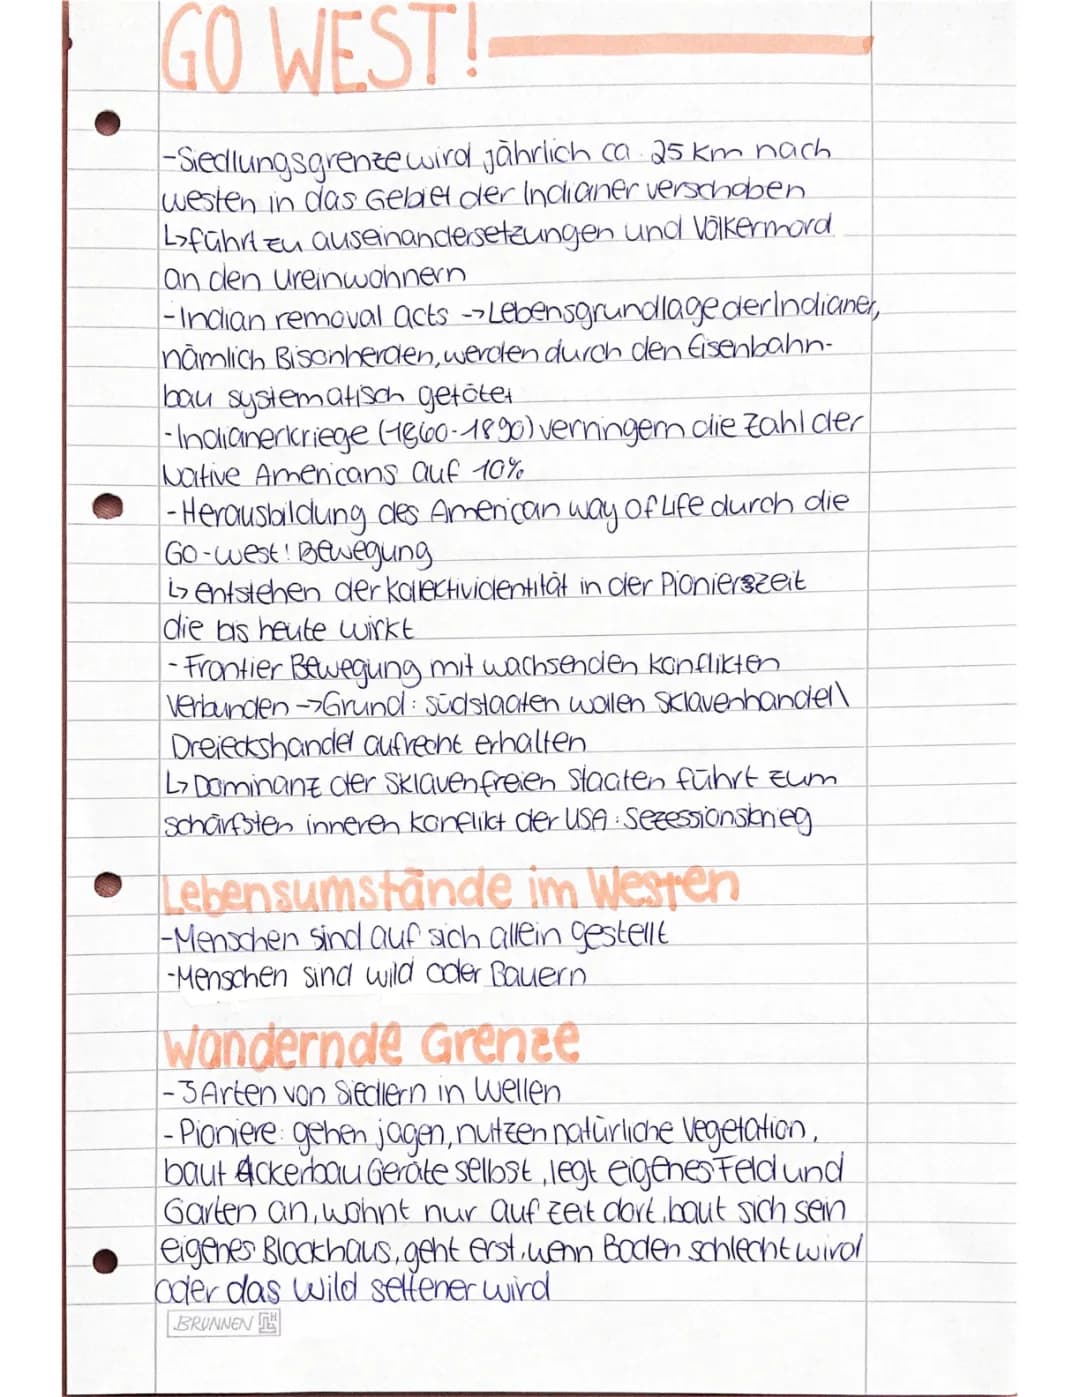 GO WEST!
-Siedlungsgrenze wird jährlich ca. 25 km nach
westen in das Gebiet der Indianer verschoben
↳führt zu auseinandersetzungen und Völkermord
an den ureinwohnern
-Indian removal acts → Lebensgrundlage der Indianer,
nämlich Bisonherden, werden durch den Eisenbahn-
bau systematisch getötet
-Indianerkriege (1860-1890) verringern die Zahl der
Native Americans auf 10%
-Herausbildung des American way of Life durch die
Go-west! Bewegung
↳ entstehen der kollektividentität in der Pionierszeit
die bis heute wirkt
-Frontier Bewegung mit wachsenden konflikten
verbunden → Grund: südstaaten wollen Sklavenhandel\
Dreieckshandel aufrecht erhalten
↳ Dominanz der Sklavenfreien Staaten führt zum
schärfsten inneren konflikt der USA: Sezessionskrieg
Lebensumstände im Westen
-Menschen sind auf sich allein gestellt
-Menschen sind wild oder Bauern
Wandernde Grenze
-3 Arten von Siedlern in Wellen
-Pioniere: gehen jagen, nutzen natürliche Vegetation,
baut Ackerbau Geräte selbst, legt eigenes Feld und
Garten an, wohnt nur auf Zeit dort, baut sich sein
eigenes Blockhaus, geht erst, wenn Boden schlecht wird
oder das Wild seltener wird
BRUNNEN